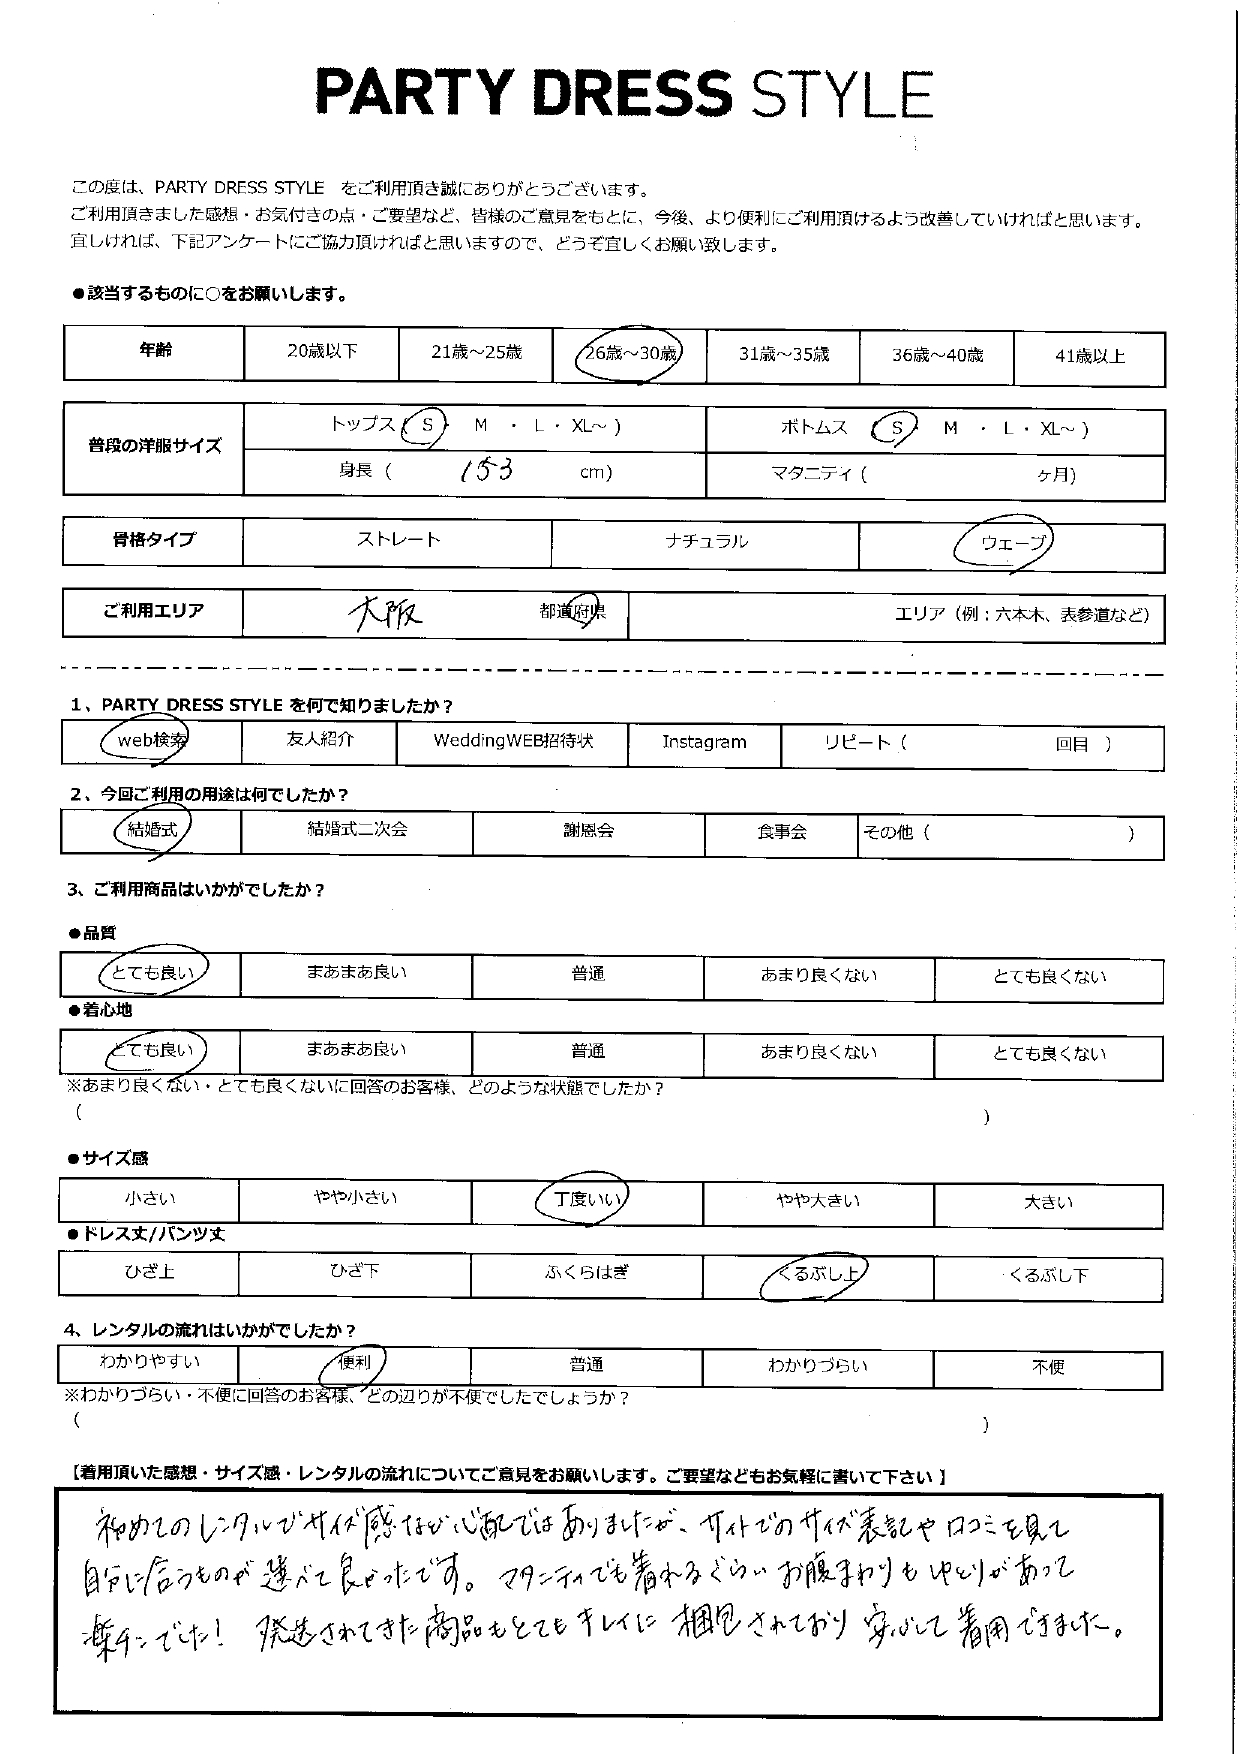 PARTY DRESS STYLE
この度は、PARTY DRESS STYLE をご利用頂き誠にありがとうございます。
ご利用頂きました感想・お気付きの点・ご要望など、皆様のご意見をもとに、今後、より便利にご利用頂けるよう改善していければと思います。
宜しければ、下記アンケートにご協力頂ければと思いますので、どうぞ宜しくお願い致します。
●該当するものに○をお願いします。
年齢 20歳以下 21歳～25歳 26歳～30歳 31歳～35歳 36歳～40歳 41歳以上
普段の洋服サイズ トップス ( S ・ M ・ L ・ XL～ ) ボトムス ( S ・ M ・ L ・ XL～ )
身長 ( 153 cm) マタニティ ( ヶ月)
骨格タイプ ストレート ナチュラル ウェーブ
ご利用エリア 大阪 都道府県 エリア（例：六本木、表参道など）
1、PARTY DRESS STYLE を何で知りましたか？
web検索 友人紹介 WeddingWEB招待状 Instagram リピート ( 回目 )
2、今回ご利用の用途は何でしたか？
結婚式 結婚式二次会 謝恩会 食事会 その他 ( )
3、ご利用商品はいかがでしたか？
●品質
とても良い まあまあ良い 普通 あまり良くない とても良くない
●着心地
とても良い まあまあ良い 普通 あまり良くない とても良くない
※あまり良くない・とても良くないに回答のお客様、どのような状態でしたか？
( )
●サイズ感
小さい やや小さい 丁度いい やや大きい 大きい
●ドレス丈/パンツ丈
ひざ上 ひざ下 ふくらはぎ くるぶし上 くるぶし下
4、レンタルの流れはいかがでしたか？
わかりやすい 便利 普通 わかりづらい 不便
※わかりづらい・不便に回答のお客様、どの辺りが不便でしたでしょうか？
( )
【着用頂いた感想・サイズ感・レンタルの流れについてご意見をお願いします。ご要望などもお気軽に書いて下さい】
初めてのレンタルでサイズ感など心配ではありましたが、サイトでのサイズ表記や口コミを見て
自分に合うものが選べて良かったです。マタニティでも着れるぐらいお腹まわりもゆとりがあって
楽チンでした！発送されてきた商品もとてもキレイに梱包されており安心して着用できました。